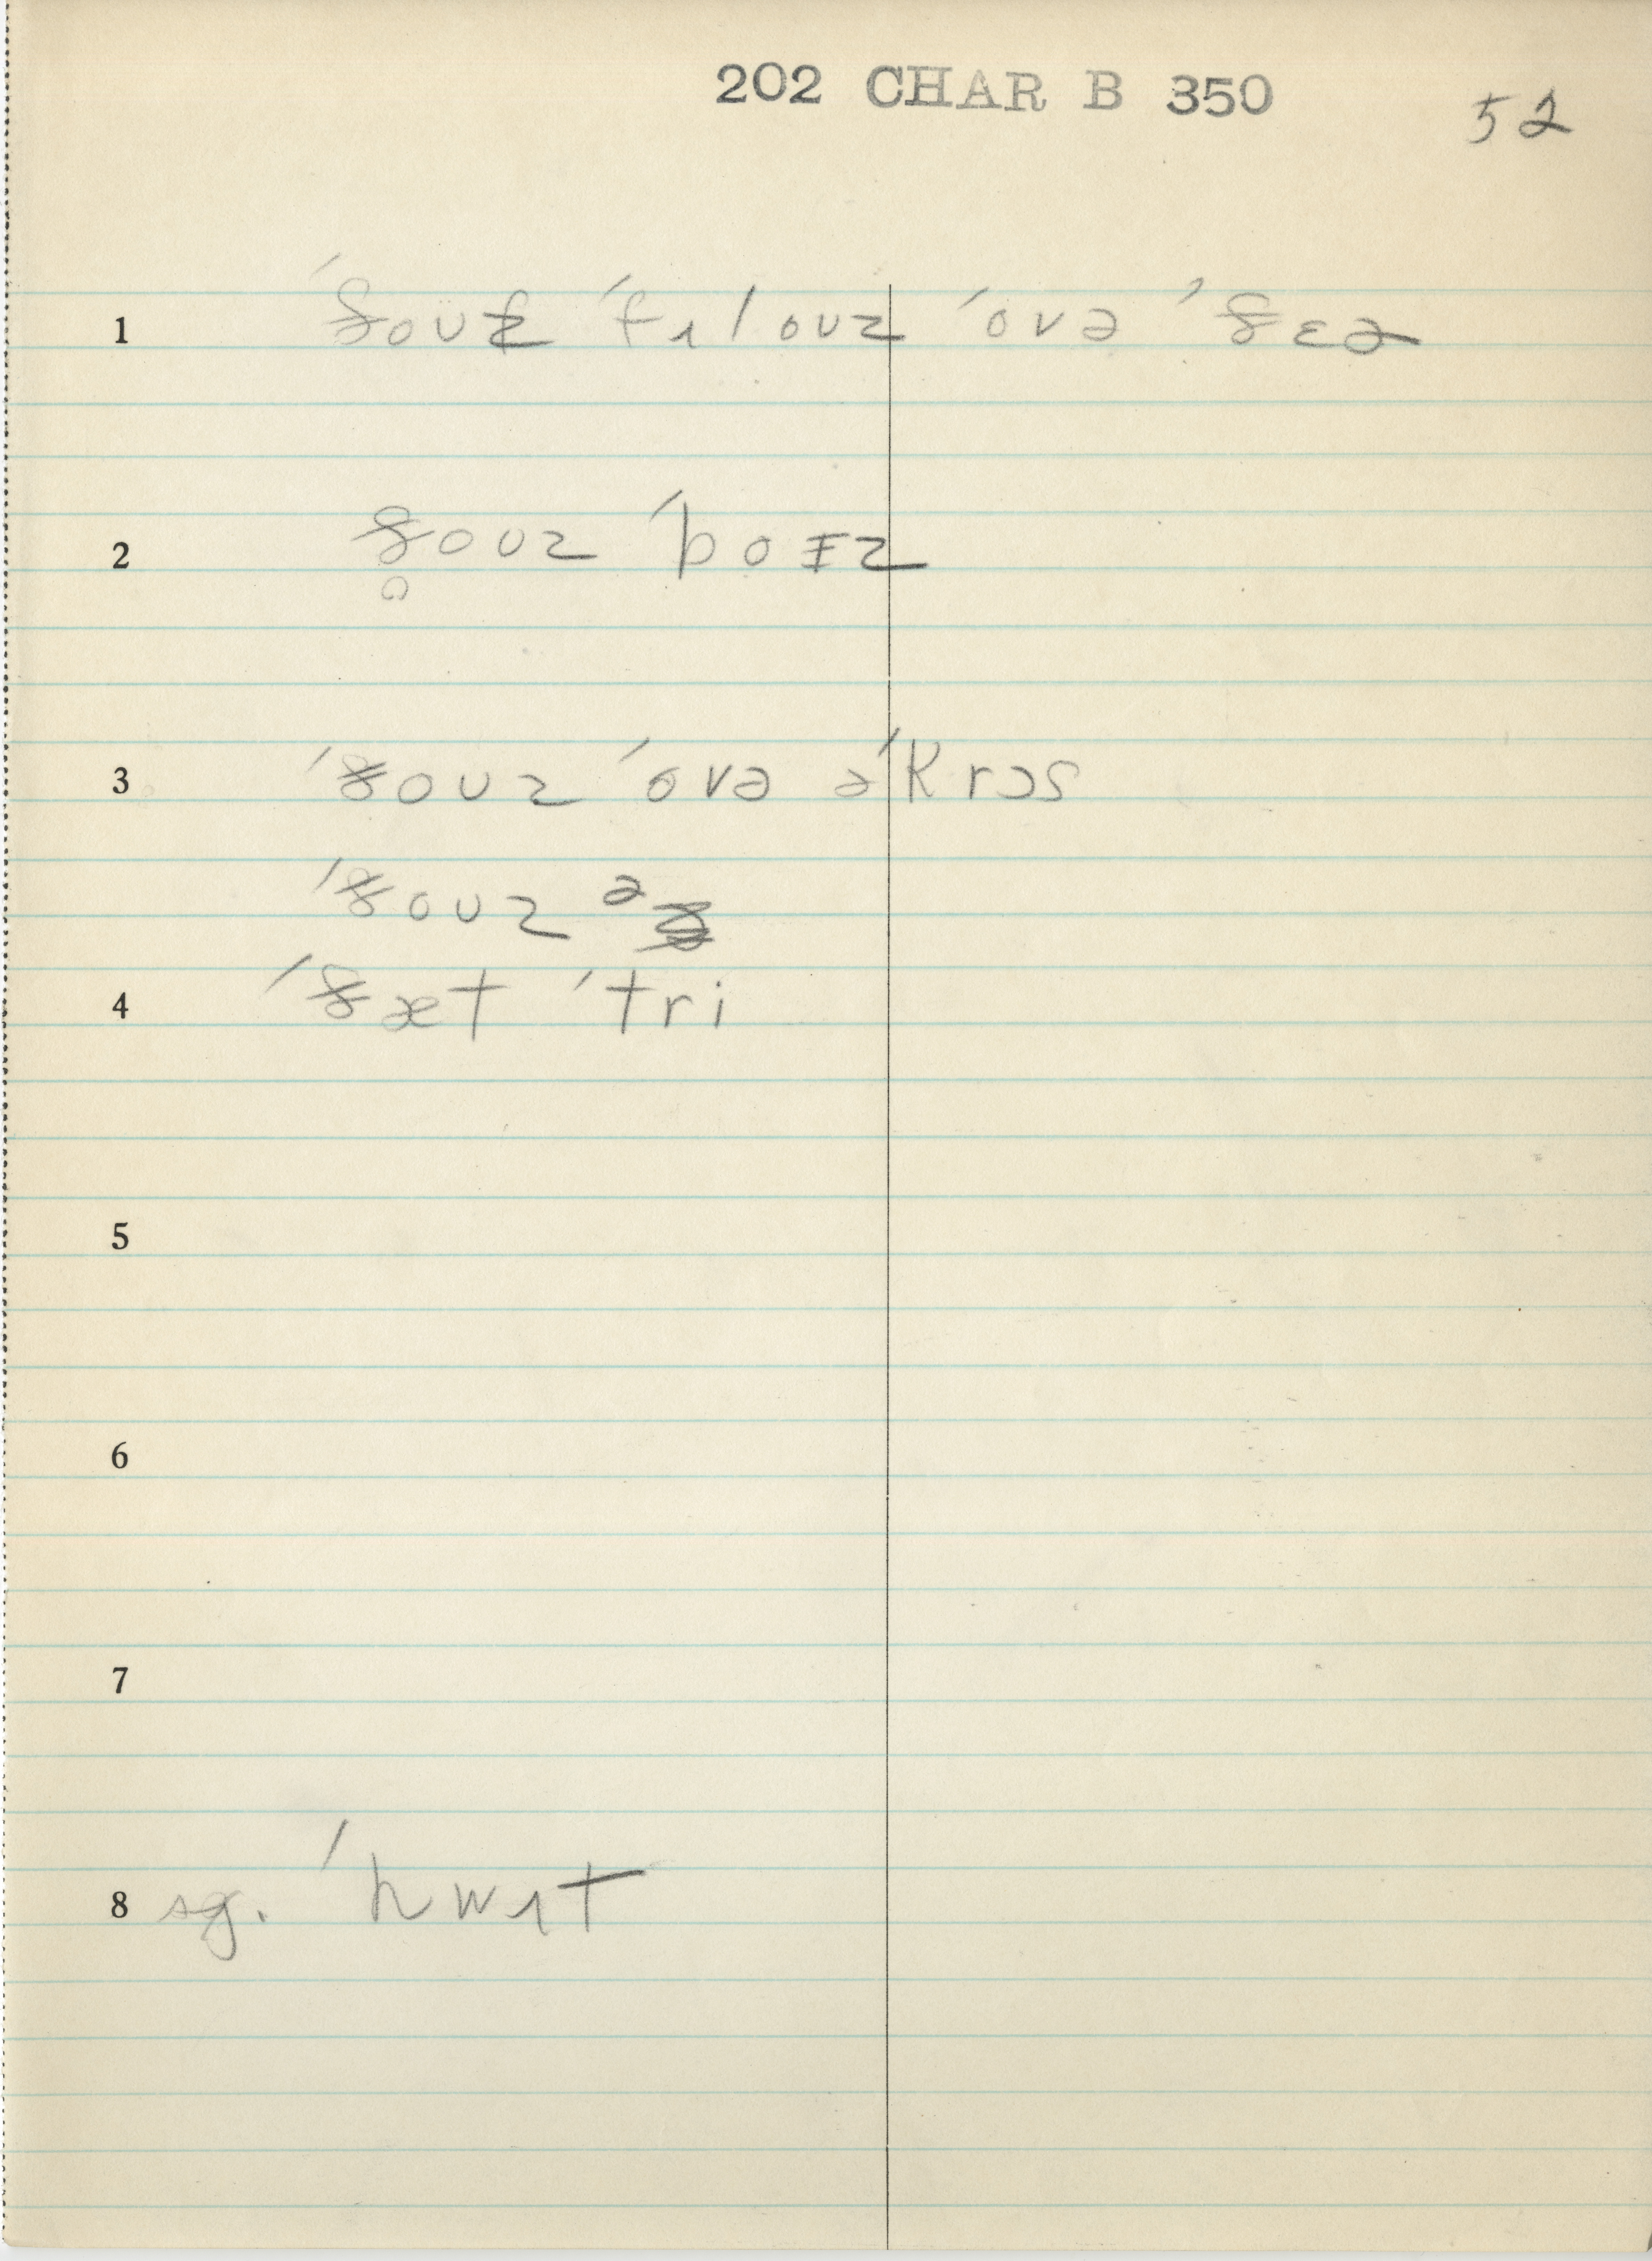 202 CHAR B 350
52
1 ˈðouz ˈfɪlouz ˈovə ˈðɛə
2 ðouz ˈboɪz
3 ˈðouz ˈovə əˈkrɔs
ˈðouz ə
4 ˈðæt ˈtri
5
6
7
8 sg. ˈhwɪt